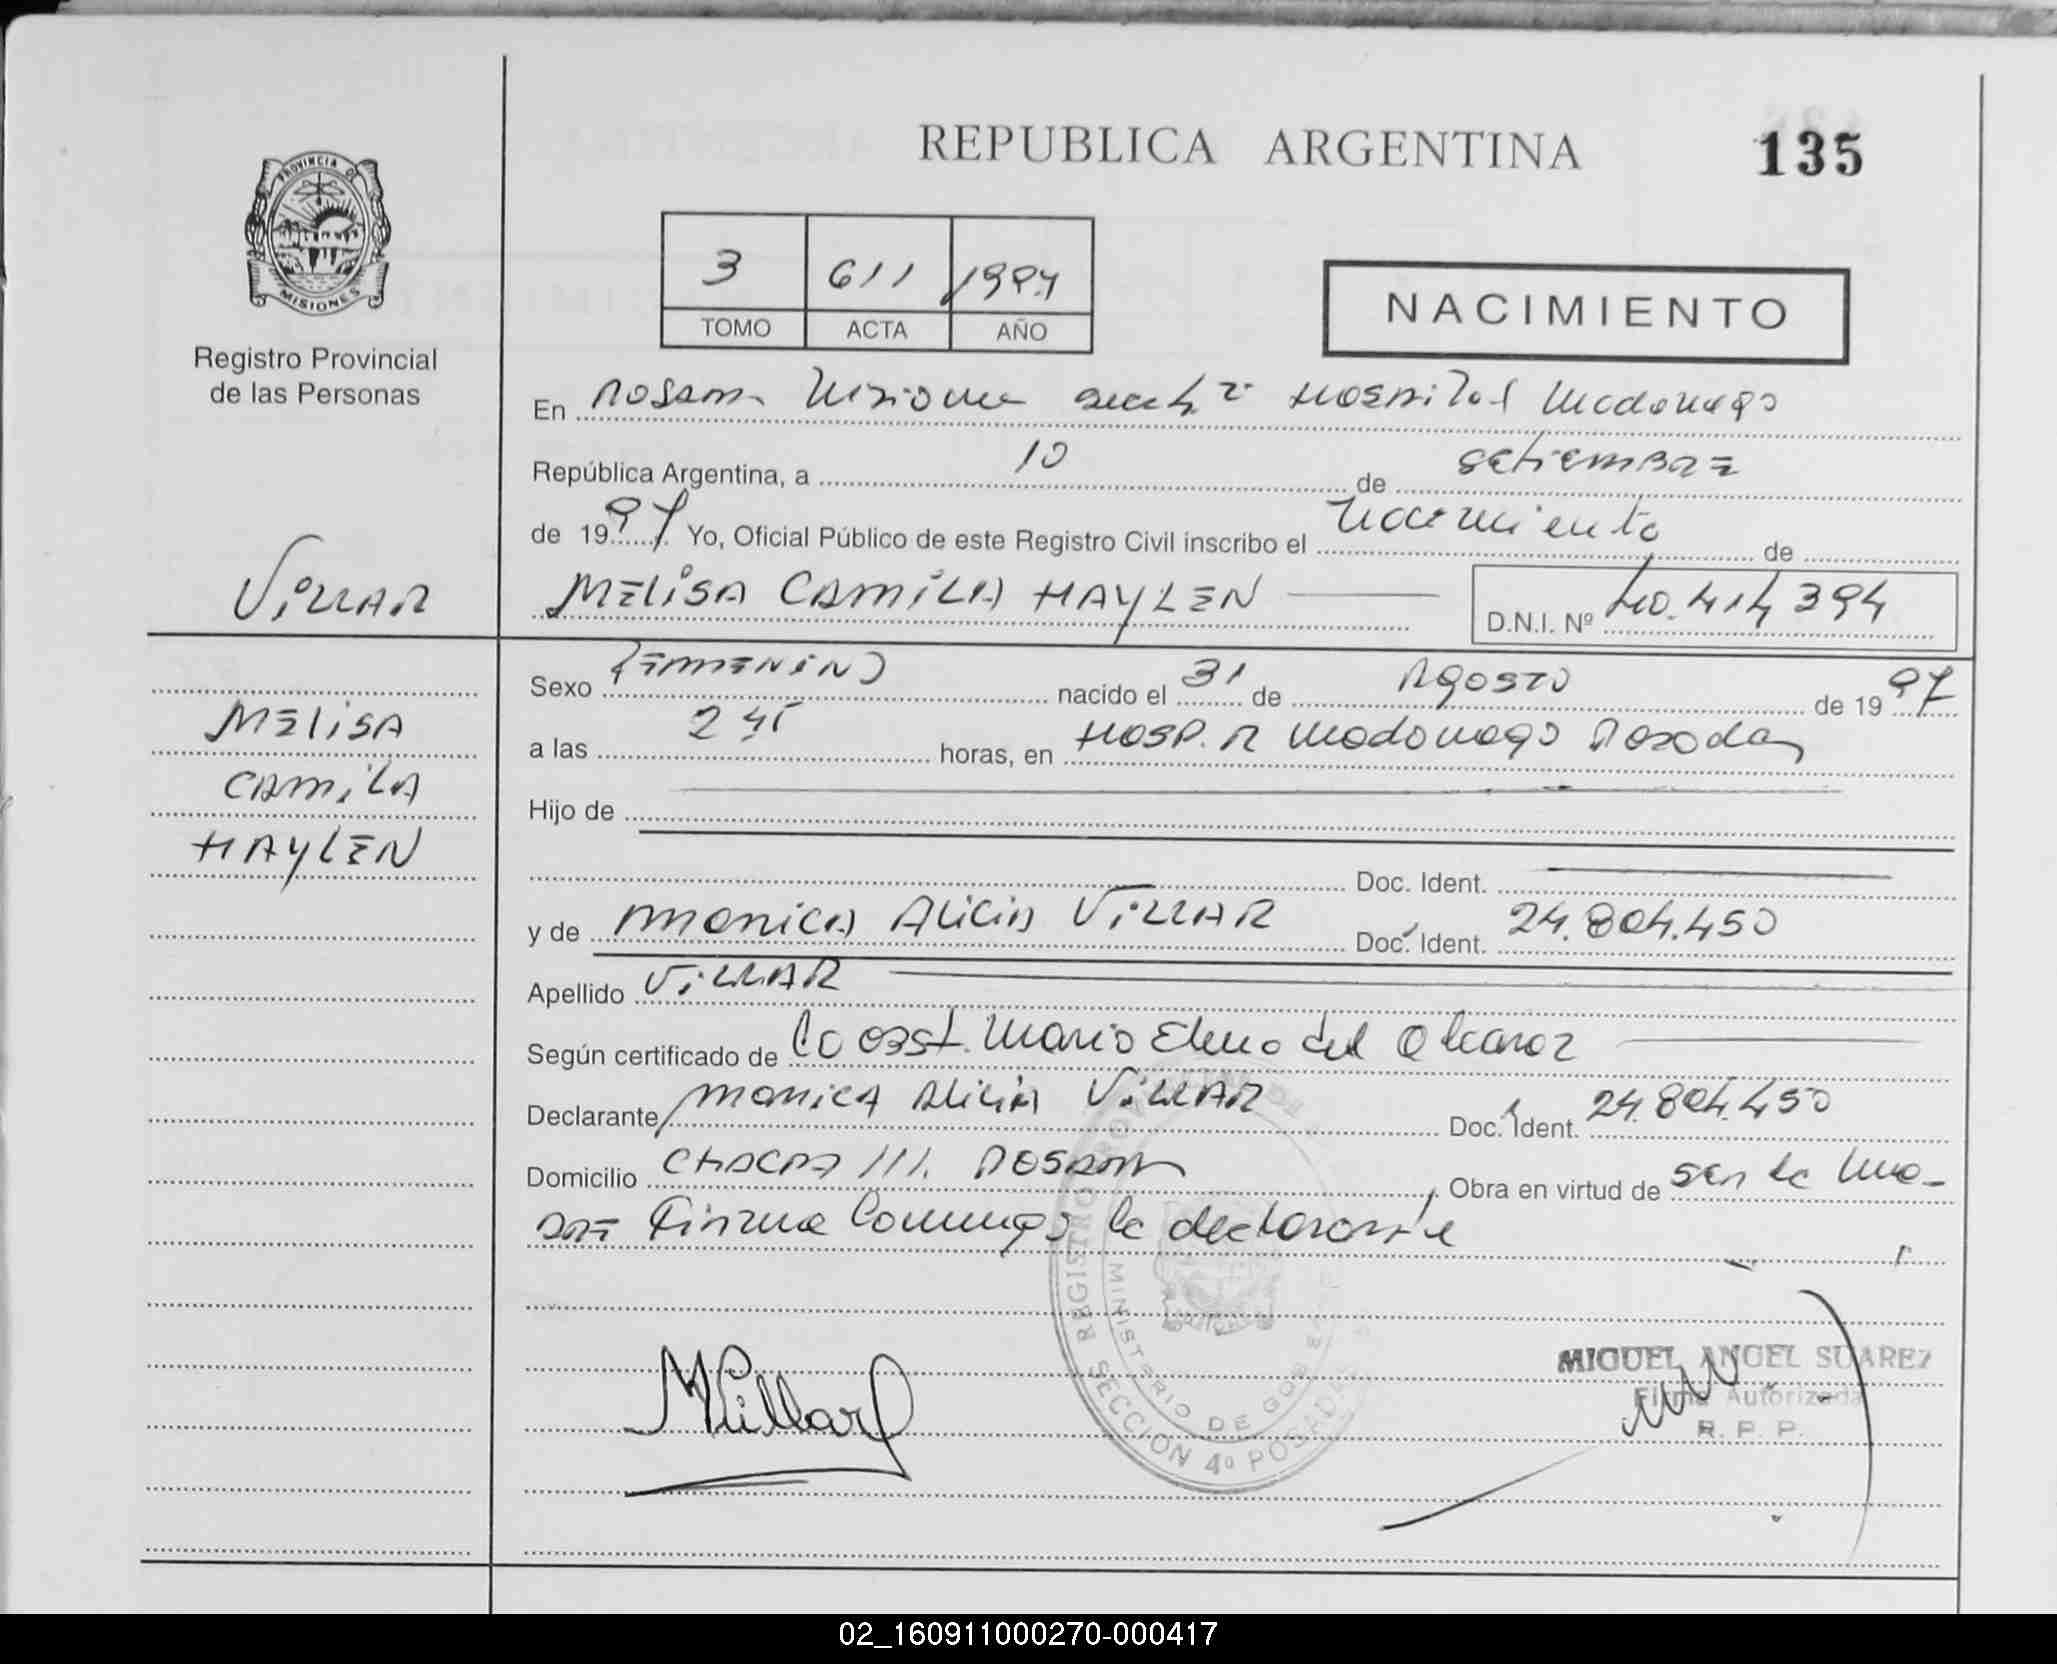 REPUBLICA ARGENTINA
135
PROVINCIA DE
MISIONES
Registro Provincial
de las Personas
3 611 1997
TOMO ACTA AÑO
NACIMIENTO
En Posadas Misiones Secc 4ª Hospital Madariaga
República Argentina, a 10 de Setiembre
de 1997 Yo, Oficial Público de este Registro Civil inscribo el Nacimiento de
VILLAR
MELISA CAMILA HAYLEN
D.N.I. Nº 40.414.394
Sexo FEMENINO nacido el 31 de Agosto de 1997
MELISA
a las 2 45 horas, en Hosp. R Madariaga Posadas
CAMILA
Hijo de
HAYLEN
Doc. Ident.
y de MONICA ALICIA VILLAR Doc. Ident. 24.804.450
Apellido VILLAR
Según certificado de la Obst. Maria Elena del Alcaraz
Declarante MONICA ALICIA VILLAR Doc. Ident. 24.804.450
Domicilio CHACRA 111. POSADAS Obra en virtud de ser la Ma-
dre Firma Conmigo la declarante
REGISTRO PROVINCIAL DE
MINISTERIO DE GOB
SECCION 4º POSADAS
MVillar
MIGUEL ANGEL SUAREZ
Firma Autorizada
R. P. P.
02_160911000270-000417